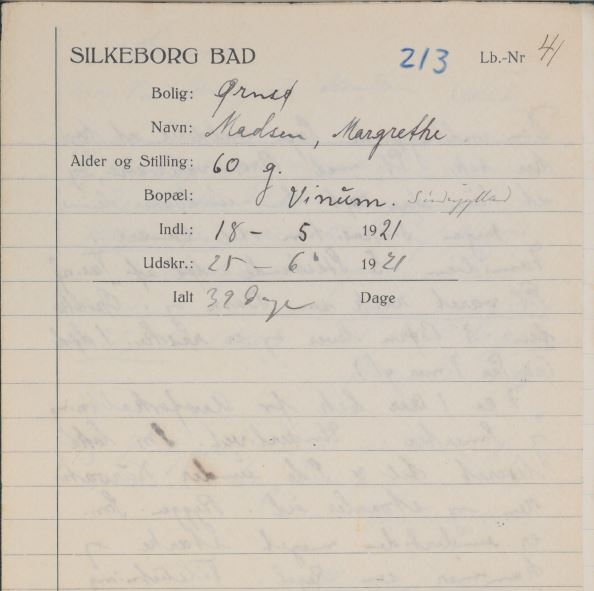 SILKEBORG BAD 213 Lb.-Nr 41
Bolig: Ørnsø
Navn: Madsen, Margrethe
Alder og Stilling: 60 g.
Bopæl: Vinum. Sønderjylland
Indl.: 18 - 5 1921
Udskr.: 25 - 6 1921
Ialt 39 Dage Dage